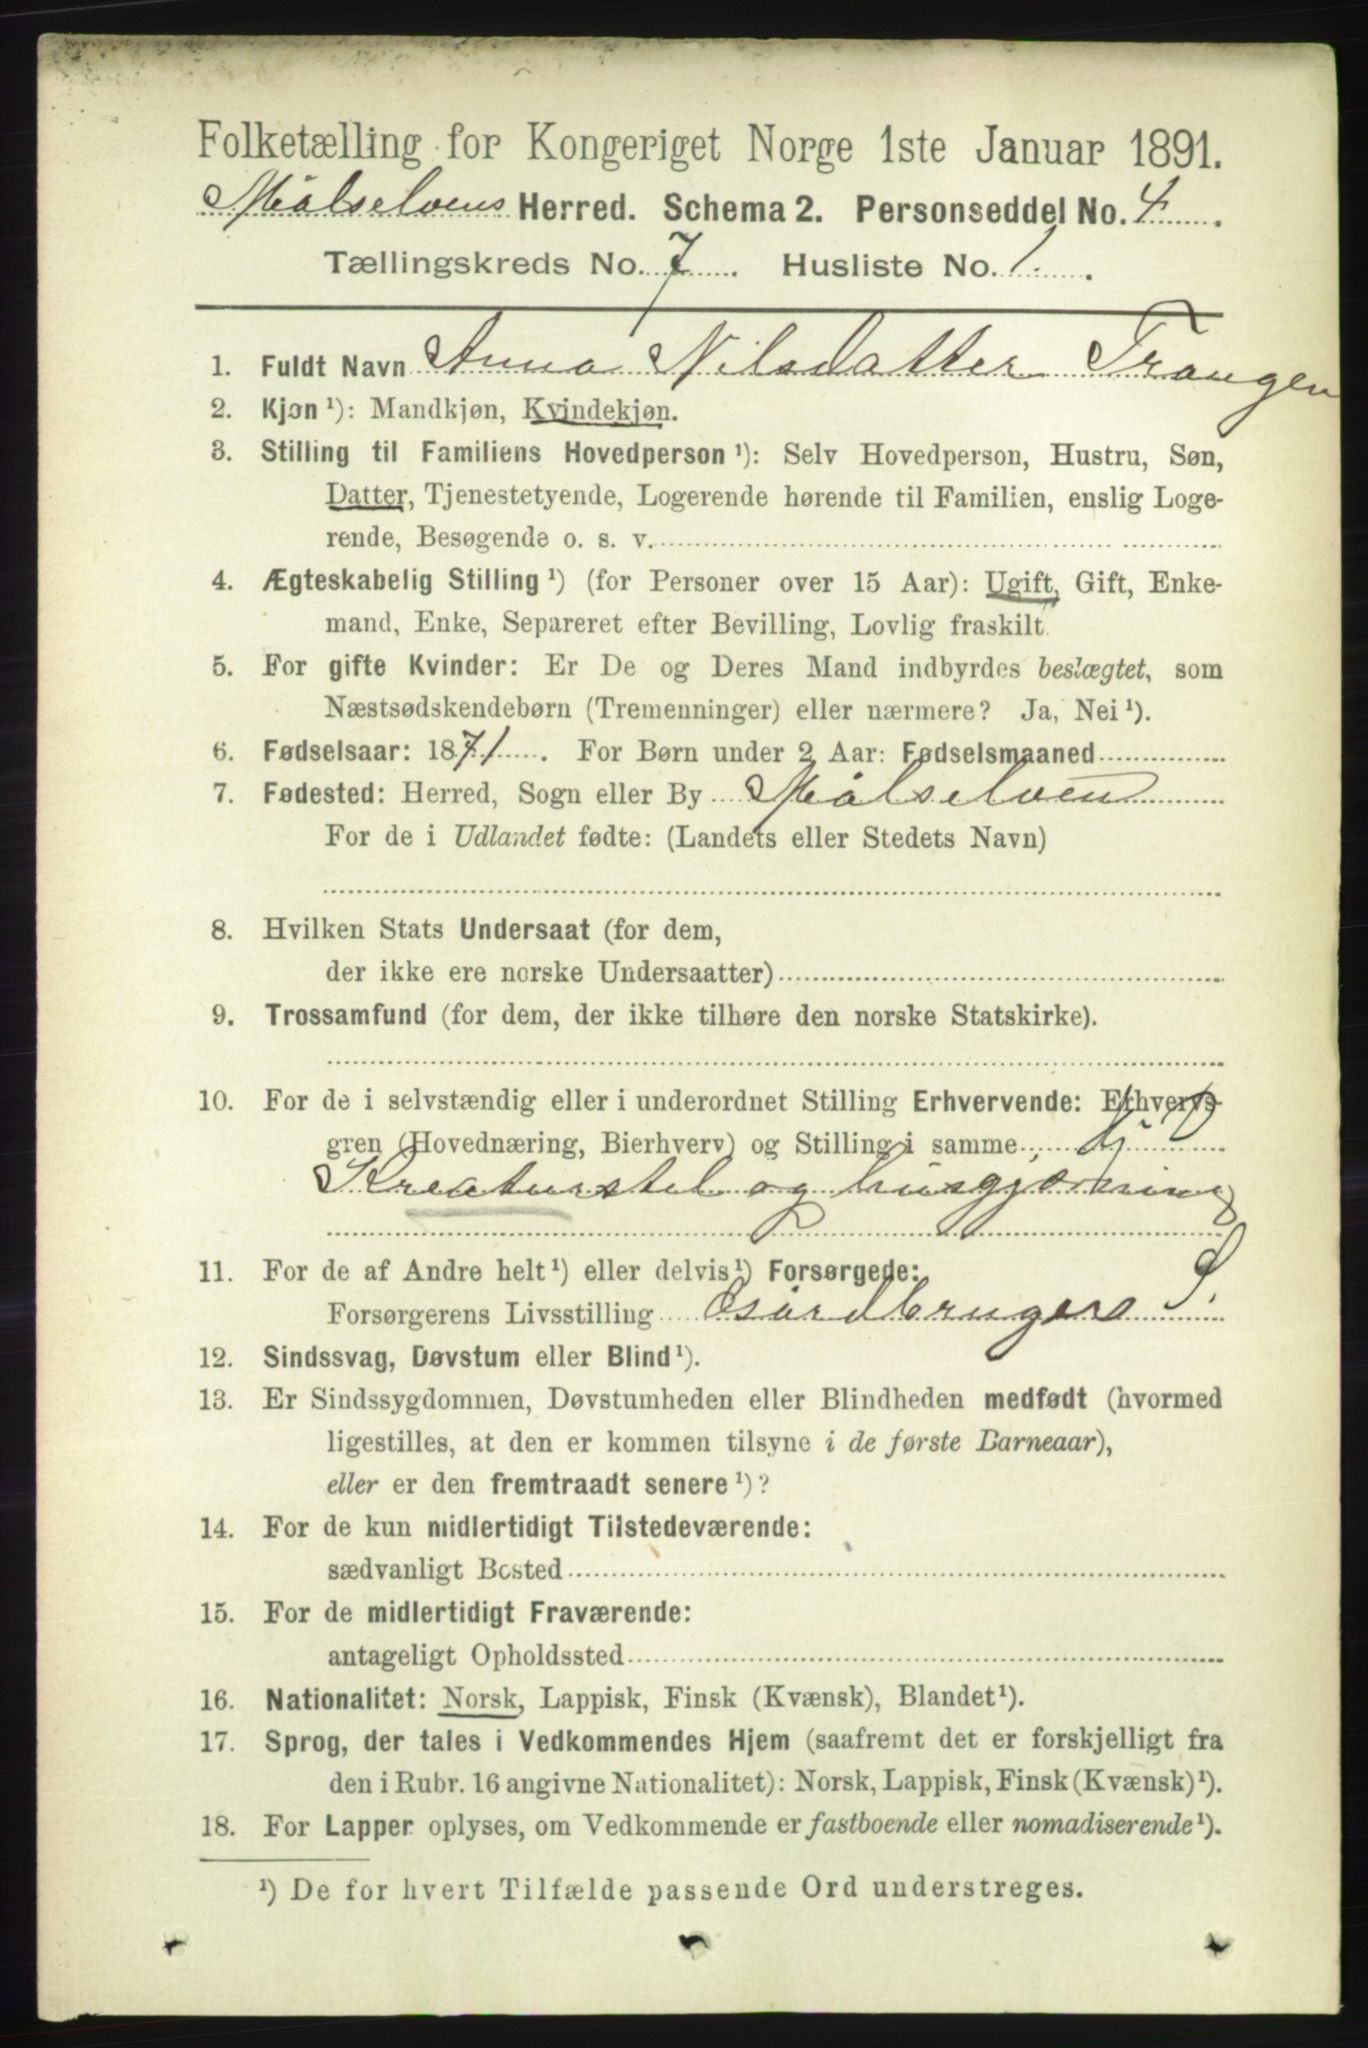 Folketælling for Kongeriget Norge 1ste Januar 1891.
Målselvens Herred. Schema 2. Personseddel No. 4
Tællingskreds No. 7. Husliste No. 1.
1. Fuldt Navn Anna Nilsdatter Trangen
2. Kjøn ¹): Mandkjøn, Kvindekjøn.
3. Stilling til Familiens Hovedperson ¹): Selv Hovedperson, Hustru, Søn,
Datter, Tjenestetyende, Logerende hørende til Familien, enslig Loge-
rende, Besøgende o. s. v.
4. Ægteskabelig Stilling ¹) (for Personer over 15 Aar): Ugift, Gift, Enke-
mand, Enke, Separeret efter Bevilling, Lovlig fraskilt
5. For gifte Kvinder: Er De og Deres Mand indbyrdes beslægtet, som
Næstsødskendebørn (Tremenninger) eller nærmere? Ja, Nei ¹).
6. Fødselsaar: 1871. For Børn under 2 Aar: Fødselsmaaned
7. Fødested: Herred, Sogn eller By Målselven
For de i Udlandet fødte: (Landets eller Stedets Navn)
8. Hvilken Stats Undersaat (for dem,
der ikke ere norske Undersaatter)
9. Trossamfund (for dem, der ikke tilhøre den norske Statskirke).
10. For de i selvstændig eller i underordnet Stilling Erhvervende: Erhvervs-
gren (Hovednæring, Bierhverv) og Stilling i samme
Kreaturstel og husgjerning
11. For de af Andre helt ¹) eller delvis ¹) Forsørgede:
Forsørgerens Livsstilling Gårdbruger S.
12. Sindssvag, Døvstum eller Blind ¹).
13. Er Sindssygdommen, Døvstumheden eller Blindheden medfødt (hvormed
ligestilles, at den er kommen tilsyne i de første Barneaar),
eller er den fremtraadt senere ¹)?
14. For de kun midlertidigt Tilstedeværende:
sædvanligt Bosted
15. For de midlertidigt Fraværende:
antageligt Opholdssted
16. Nationalitet: Norsk, Lappisk, Finsk (Kvænsk), Blandet ¹).
17. Sprog, der tales i Vedkommendes Hjem (saafremt det er forskjelligt fra
den i Rubr. 16 angivne Nationalitet): Norsk, Lappisk, Finsk (Kvænsk) ¹).
18. For Lapper oplyses, om Vedkommende er fastboende eller nomadiserende ¹).
¹) De for hvert Tilfælde passende Ord understreges.